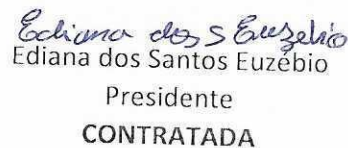 Ediana dos S Euzébio
Ediana dos Santos Euzébio
Presidente
CONTRATADA